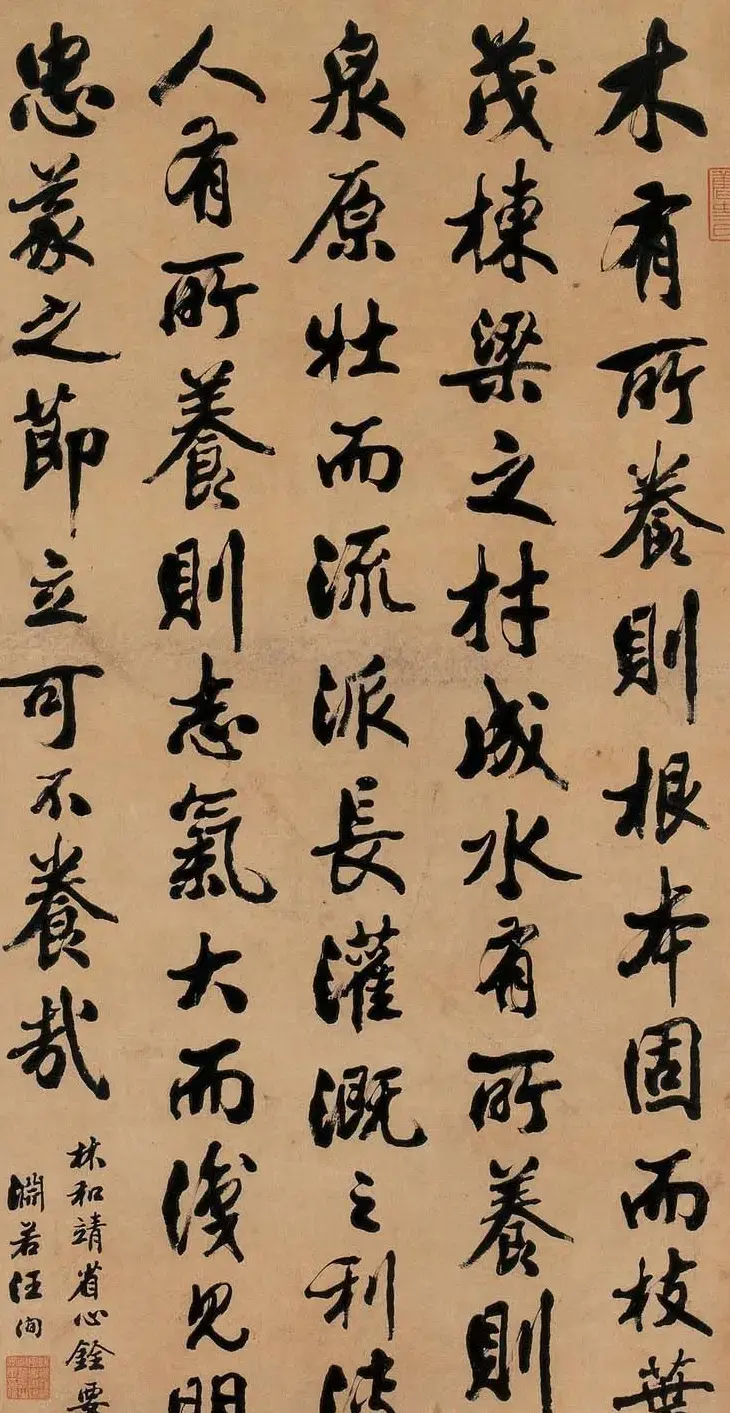 木有所養則根本固而枝葉
茂棟梁之材成水有所養則
泉原壯而流派長灌溉之利
人有所養則志氣大而識見明
忠義之節立可不養哉
林和靖省心銓要
淵若汪洵